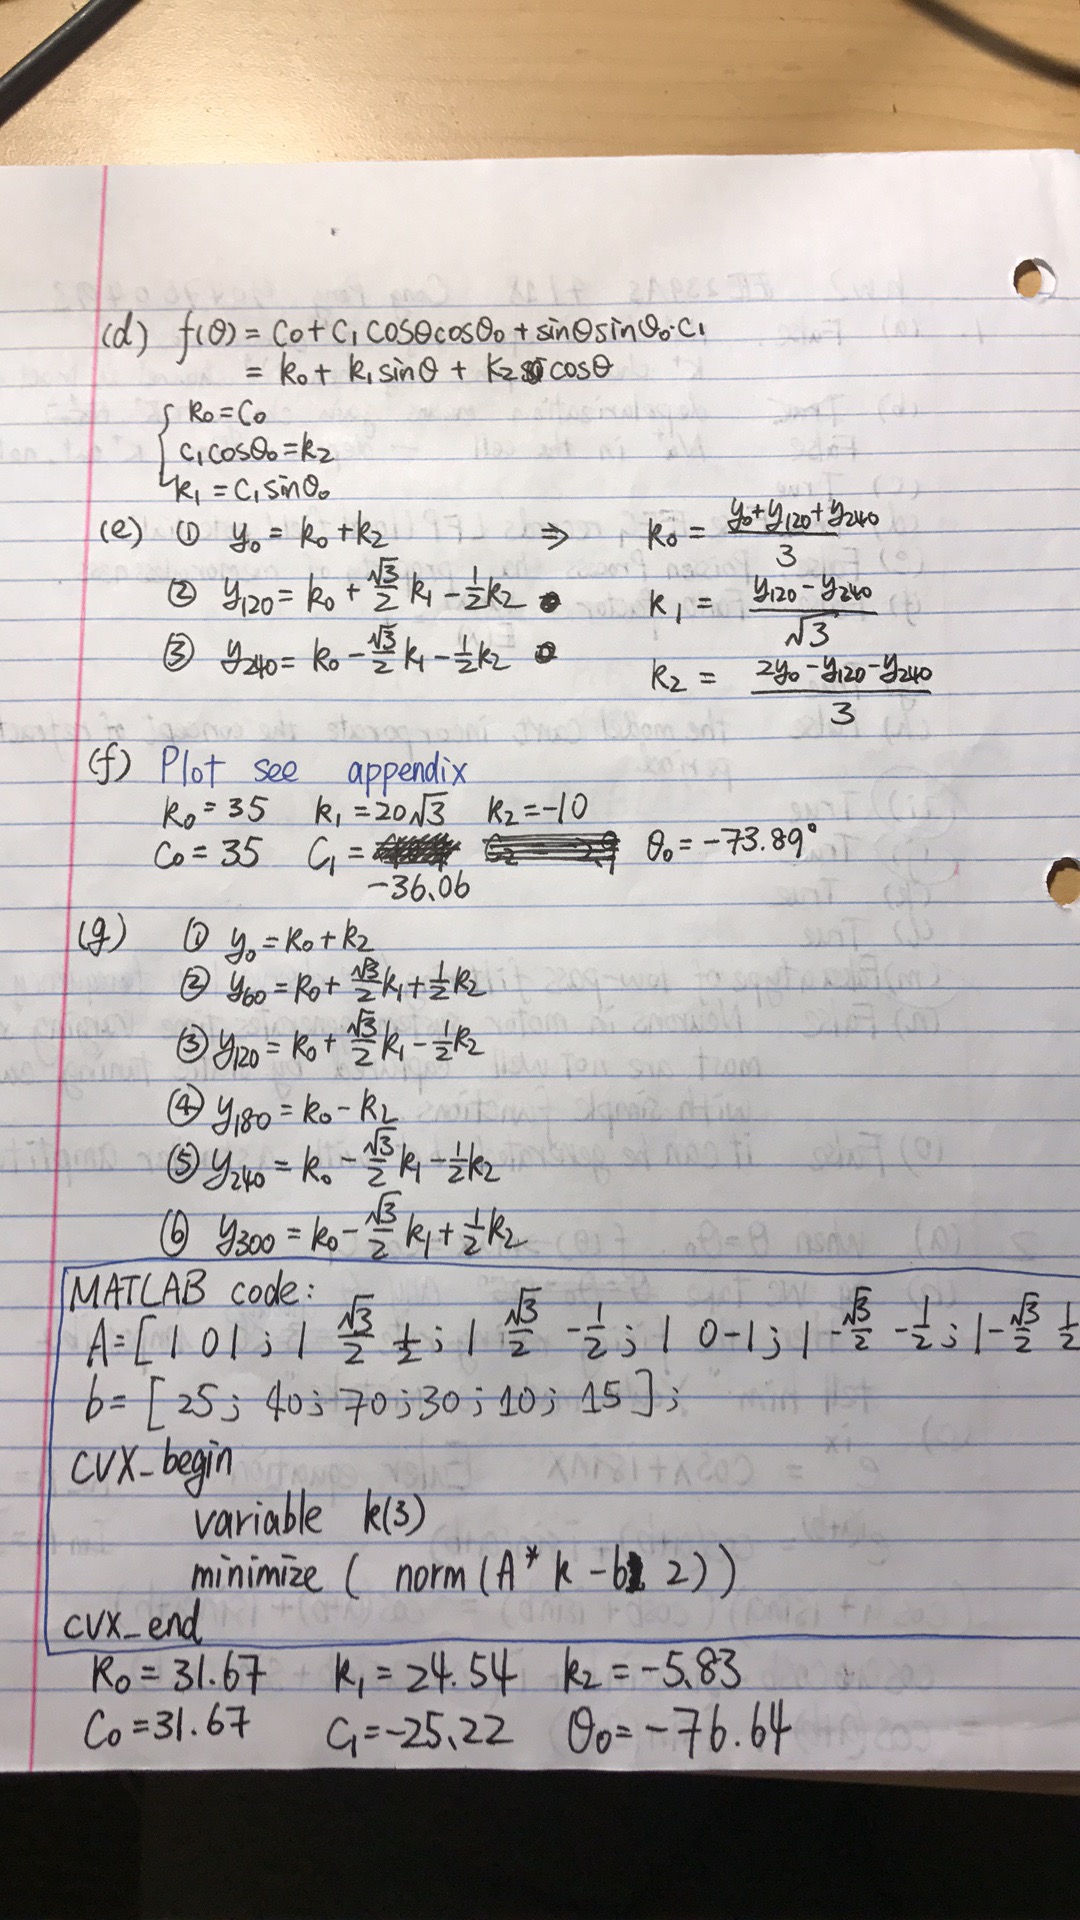 (d) f(θ) = C₀ + C₁ cosθcosθ₀ + sinθsinθ₀·C₁
= k₀ + k₁ sinθ + k₂ cosθ
{ k₀ = C₀
C₁cosθ₀ = k₂
k₁ = C₁sinθ₀
(e) ① y₀ = k₀ + k₂ ⇒ k₀ = (y₀ + y₁₂₀ + y₂₄₀)/3
② y₁₂₀ = k₀ + √3/2 k₁ - 1/2 k₂ k₁ = (y₁₂₀ - y₂₄₀)/√3
③ y₂₄₀ = k₀ - √3/2 k₁ - 1/2 k₂ k₂ = (2y₀ - y₁₂₀ - y₂₄₀)/3
(f) Plot see appendix
k₀ = 35 k₁ = 20√3 k₂ = -10
C₀ = 35 C₁ = θ₀ = -73.89°
-36.06
(g) ① y₀ = k₀ + k₂
② y₆₀ = k₀ + √3/2 k₁ + 1/2 k₂
③ y₁₂₀ = k₀ + √3/2 k₁ - 1/2 k₂
④ y₁₈₀ = k₀ - k₂
⑤ y₂₄₀ = k₀ - √3/2 k₁ - 1/2 k₂
⑥ y₃₀₀ = k₀ - √3/2 k₁ + 1/2 k₂
MATLAB code:
A = [1 0 1 ; 1 √3/2 1/2 ; 1 √3/2 -1/2 ; 1 0 -1 ; 1 -√3/2 -1/2 ; 1 -√3/2 1/2
b = [25 ; 40 ; 70 ; 30 ; 10 ; 15] ;
CVX_begin
variable k(3)
minimize ( norm (A * k - b 2))
CVX_end
k₀ = 31.67 k₁ = 24.54 k₂ = -5.83
C₀ = 31.67 C₁ = -25.22 θ₀ = -76.64